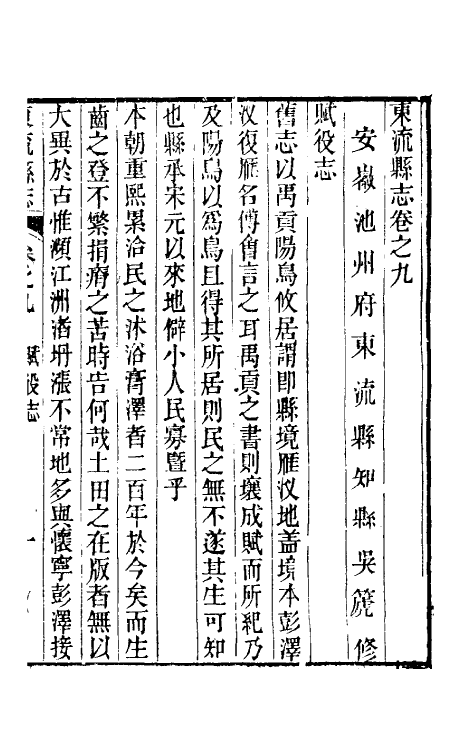 東流縣志卷之九
安徽池州府東流縣知縣吳篪修
賦役志
舊志以禹貢陽鳥攸居謂卽縣境雁汊地盖境本彭澤
汊復雁名傅會言之耳禹貢之書則壤成賦而所紀乃
及陽鳥以爲鳥且得其所居則民之無不遂其生可知
也縣承宋元以來地僻小人民寡暨乎
本朝重熙累洽民之沐浴膏澤者二百年於今矣而生
齒之登不繁捐瘠之苦時告何哉土田之在版者無以
大異於古惟瀕江洲渚坍漲不常地多與懷寧彭澤接
東流縣志
卷之九
賦役志
一